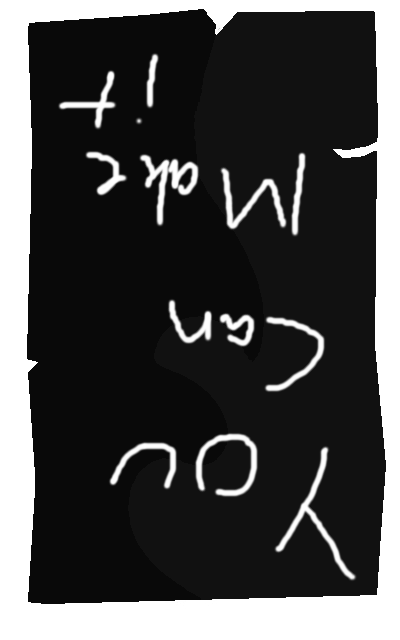 You
Can
Make
it